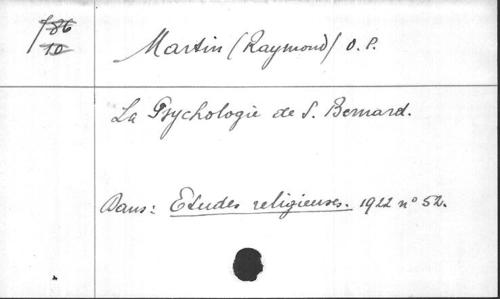 186
10
Martin (Raymond) O. P.
La Psychologie de S. Bernard.
Dans: Etudes religieuses. 1922 n° 52.